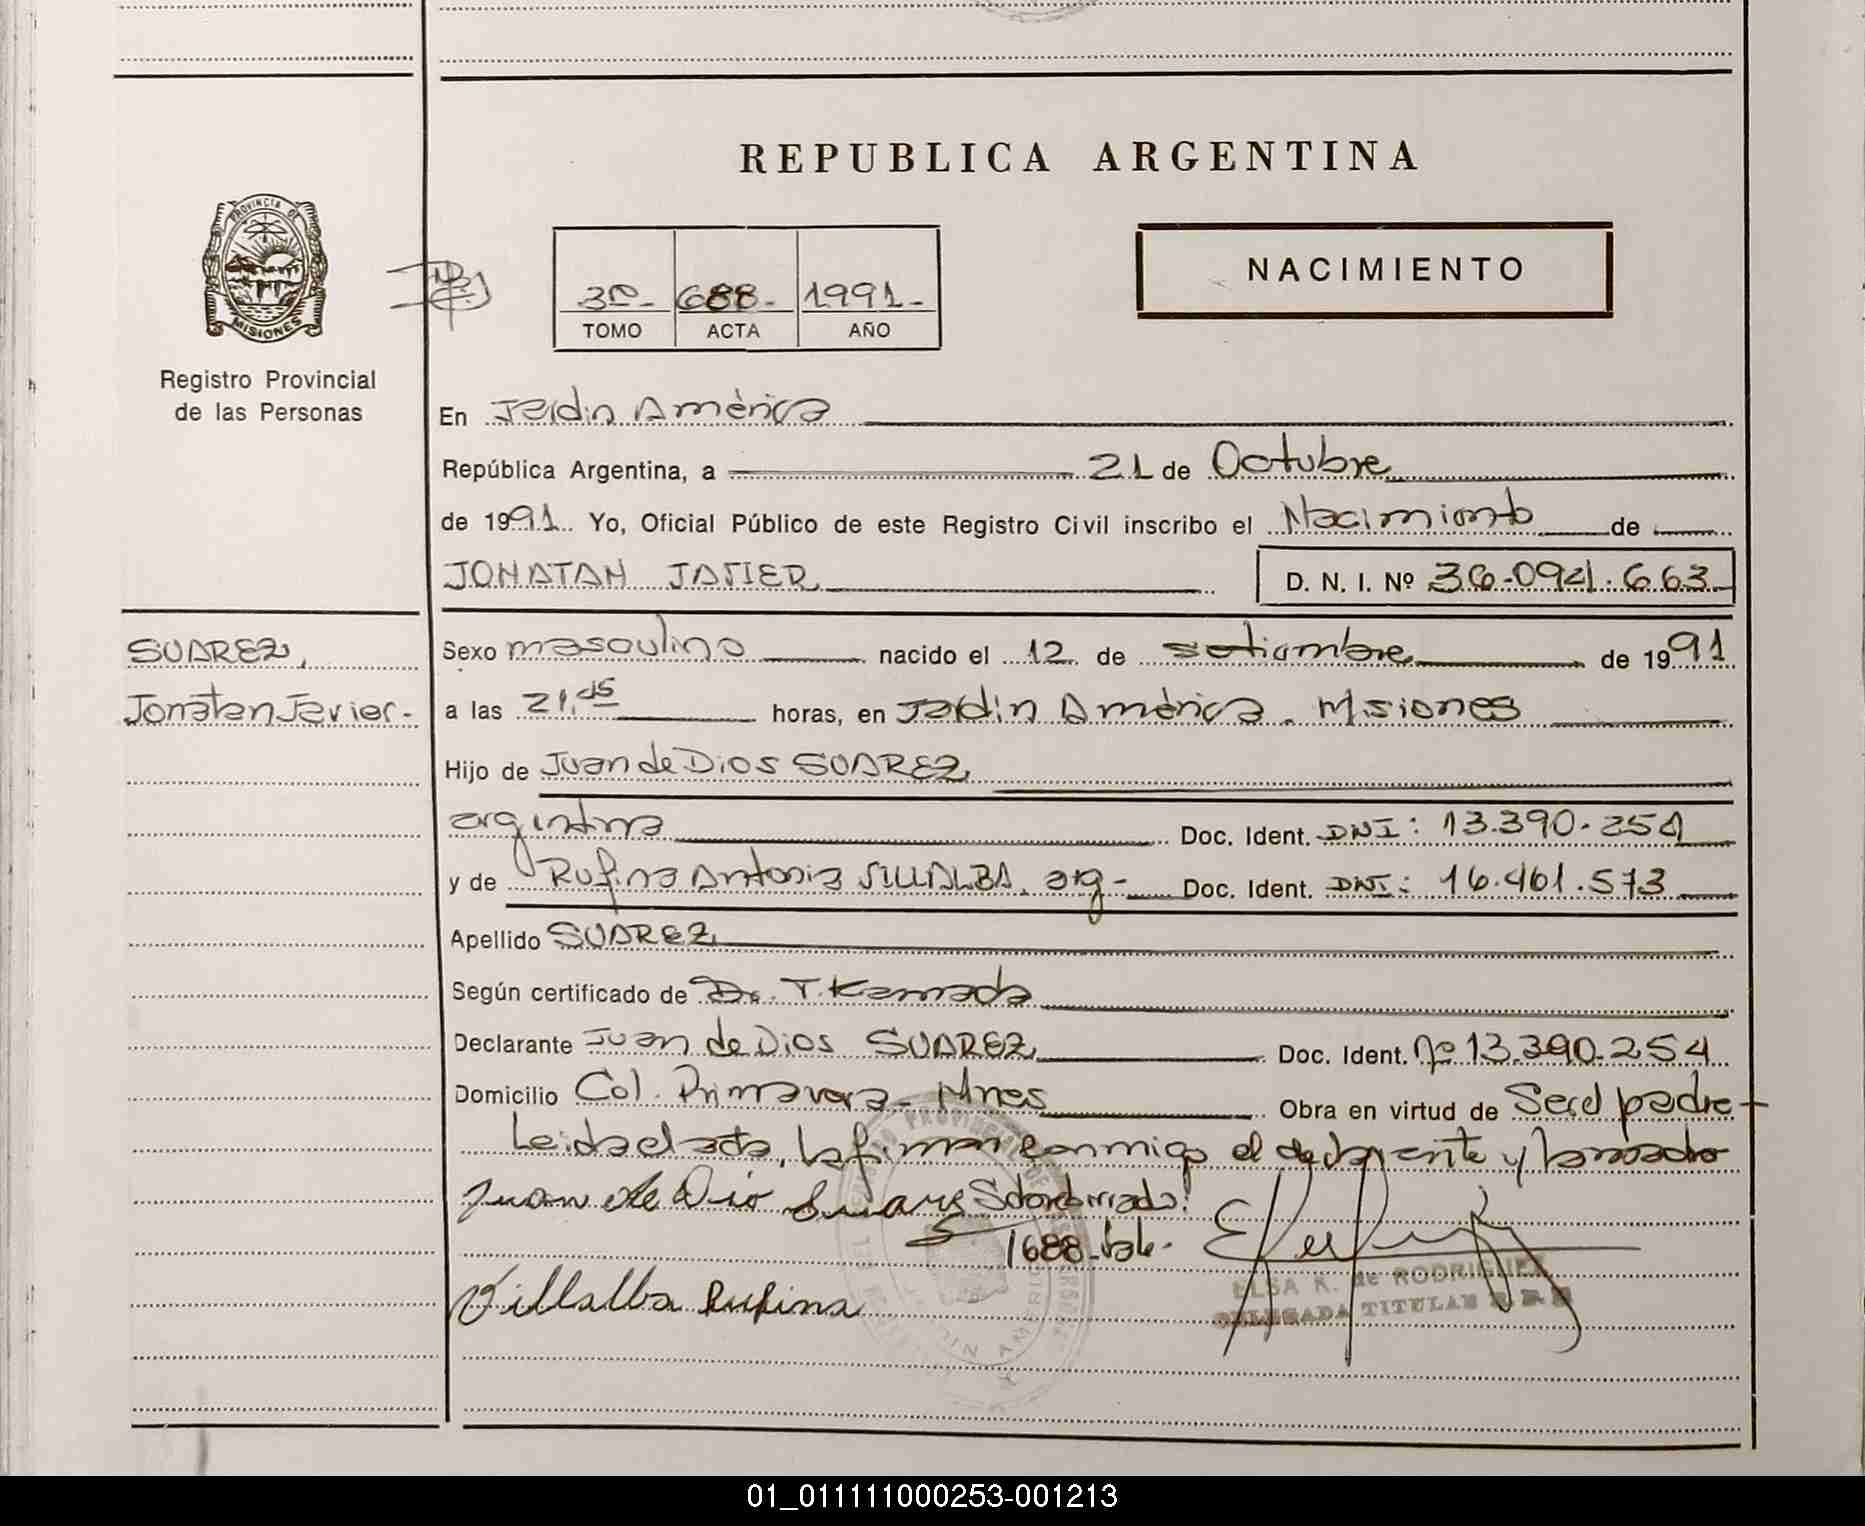 REPUBLICA ARGENTINA
PROVINCIA DE
MISIONES
Registro Provincial
de las Personas
NACIMIENTO
3º- 688- 1991-
TOMO ACTA AÑO
En Jardin América
República Argentina, a 21 de Octubre
de 1991 Yo, Oficial Público de este Registro Civil inscribo el Nacimiento de
JONATAN JAVIER D. N. I. Nº 36.094.663
SUAREZ,
Jonatan Javier.-
Sexo masculino nacido el 12 de setiembre de 1991
a las 21,45 horas, en Jardin América. Misiones
Hijo de Juan de Dios SUAREZ,
argentina Doc. Ident. DNI: 13.390.254
y de Rufina Antonia VILLALBA, arg- Doc. Ident. DNI: 16.461.573
Apellido SUAREZ
Según certificado de Dr. T. Kamada
Declarante Juan de Dios SUAREZ, Doc. Ident. Nº 13.390.254
Domicilio Col. Primavera - Mnes Obra en virtud de Ser el padre
Leida el acta, la firman conmigo el declarante y la madre
Juan de Dio Suares Sobreborrado:
1688-Vale-
Villalba Rufina
ELSA R. de RODRIGUEZ
DELEGADA TITULAR
01_011111000253-001213